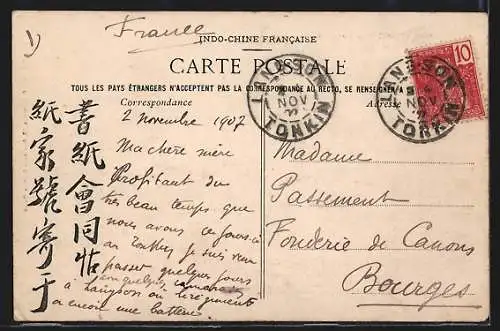 France
INDO-CHINE FRANÇAISE
CARTE POSTALE
TOUS LES PAYS ÉTRANGERS N'ACCEPTENT PAS LA CORRESPONDANCE AU RECTO, SE RENSEIGNER A
Correspondance
Adresse
LANG-SON
NOV
TONKIN
LANG-SON
NOV
TONKIN
10
2 novembre 1907
Ma chère mère
Profitant du
très beau temps que
nous avons ces jours-ci
au Tonkin je suis venu
passer quelques jours
à Langson où le régiment
a encore une batterie
Madame
Passement
Fonderie de Canons
Bourges
書紙會同帖
紙家號寄于